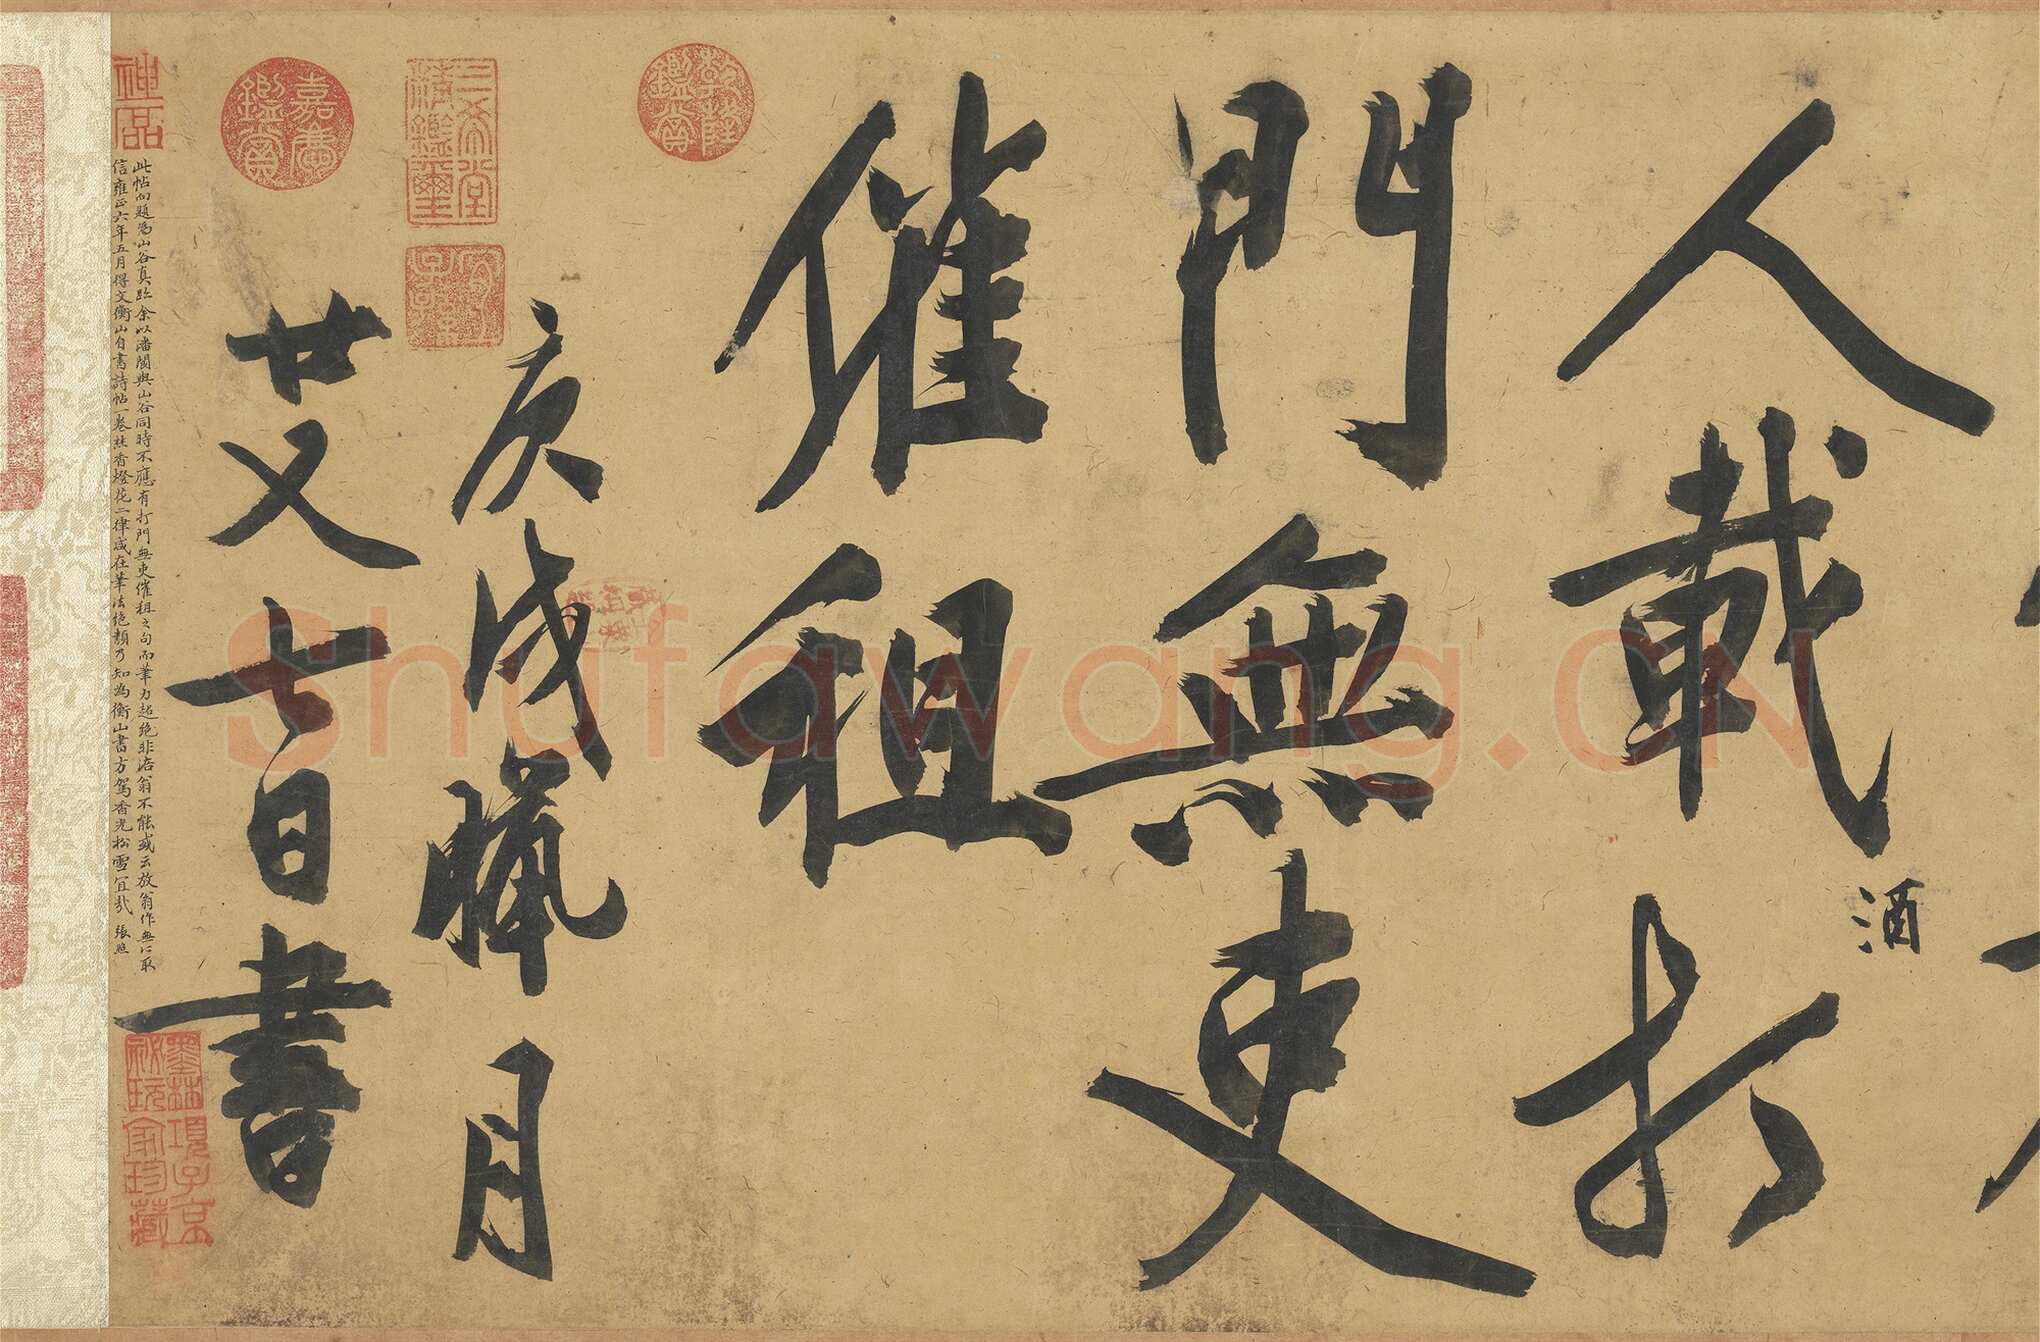 人載打
酒
門無吏
催租
庚戌臘月
廿又七日書
此帖向題為山谷真跡余以潘閬與山谷同時不應有打門無吏催租之句而筆力超絕非涪翁不能或云放翁作無以取
信雍正六年五月得文衡山自書詩帖一卷
香燈花二律咸在筆法絕類乃知為衡山書方駕香光松雪宜哉 張照
神品
嘉慶鑑賞
三希堂精鑑璽
宜子孫
乾隆鑑賞
墨林秘玩
項子京家珍藏
Shufawang.CN